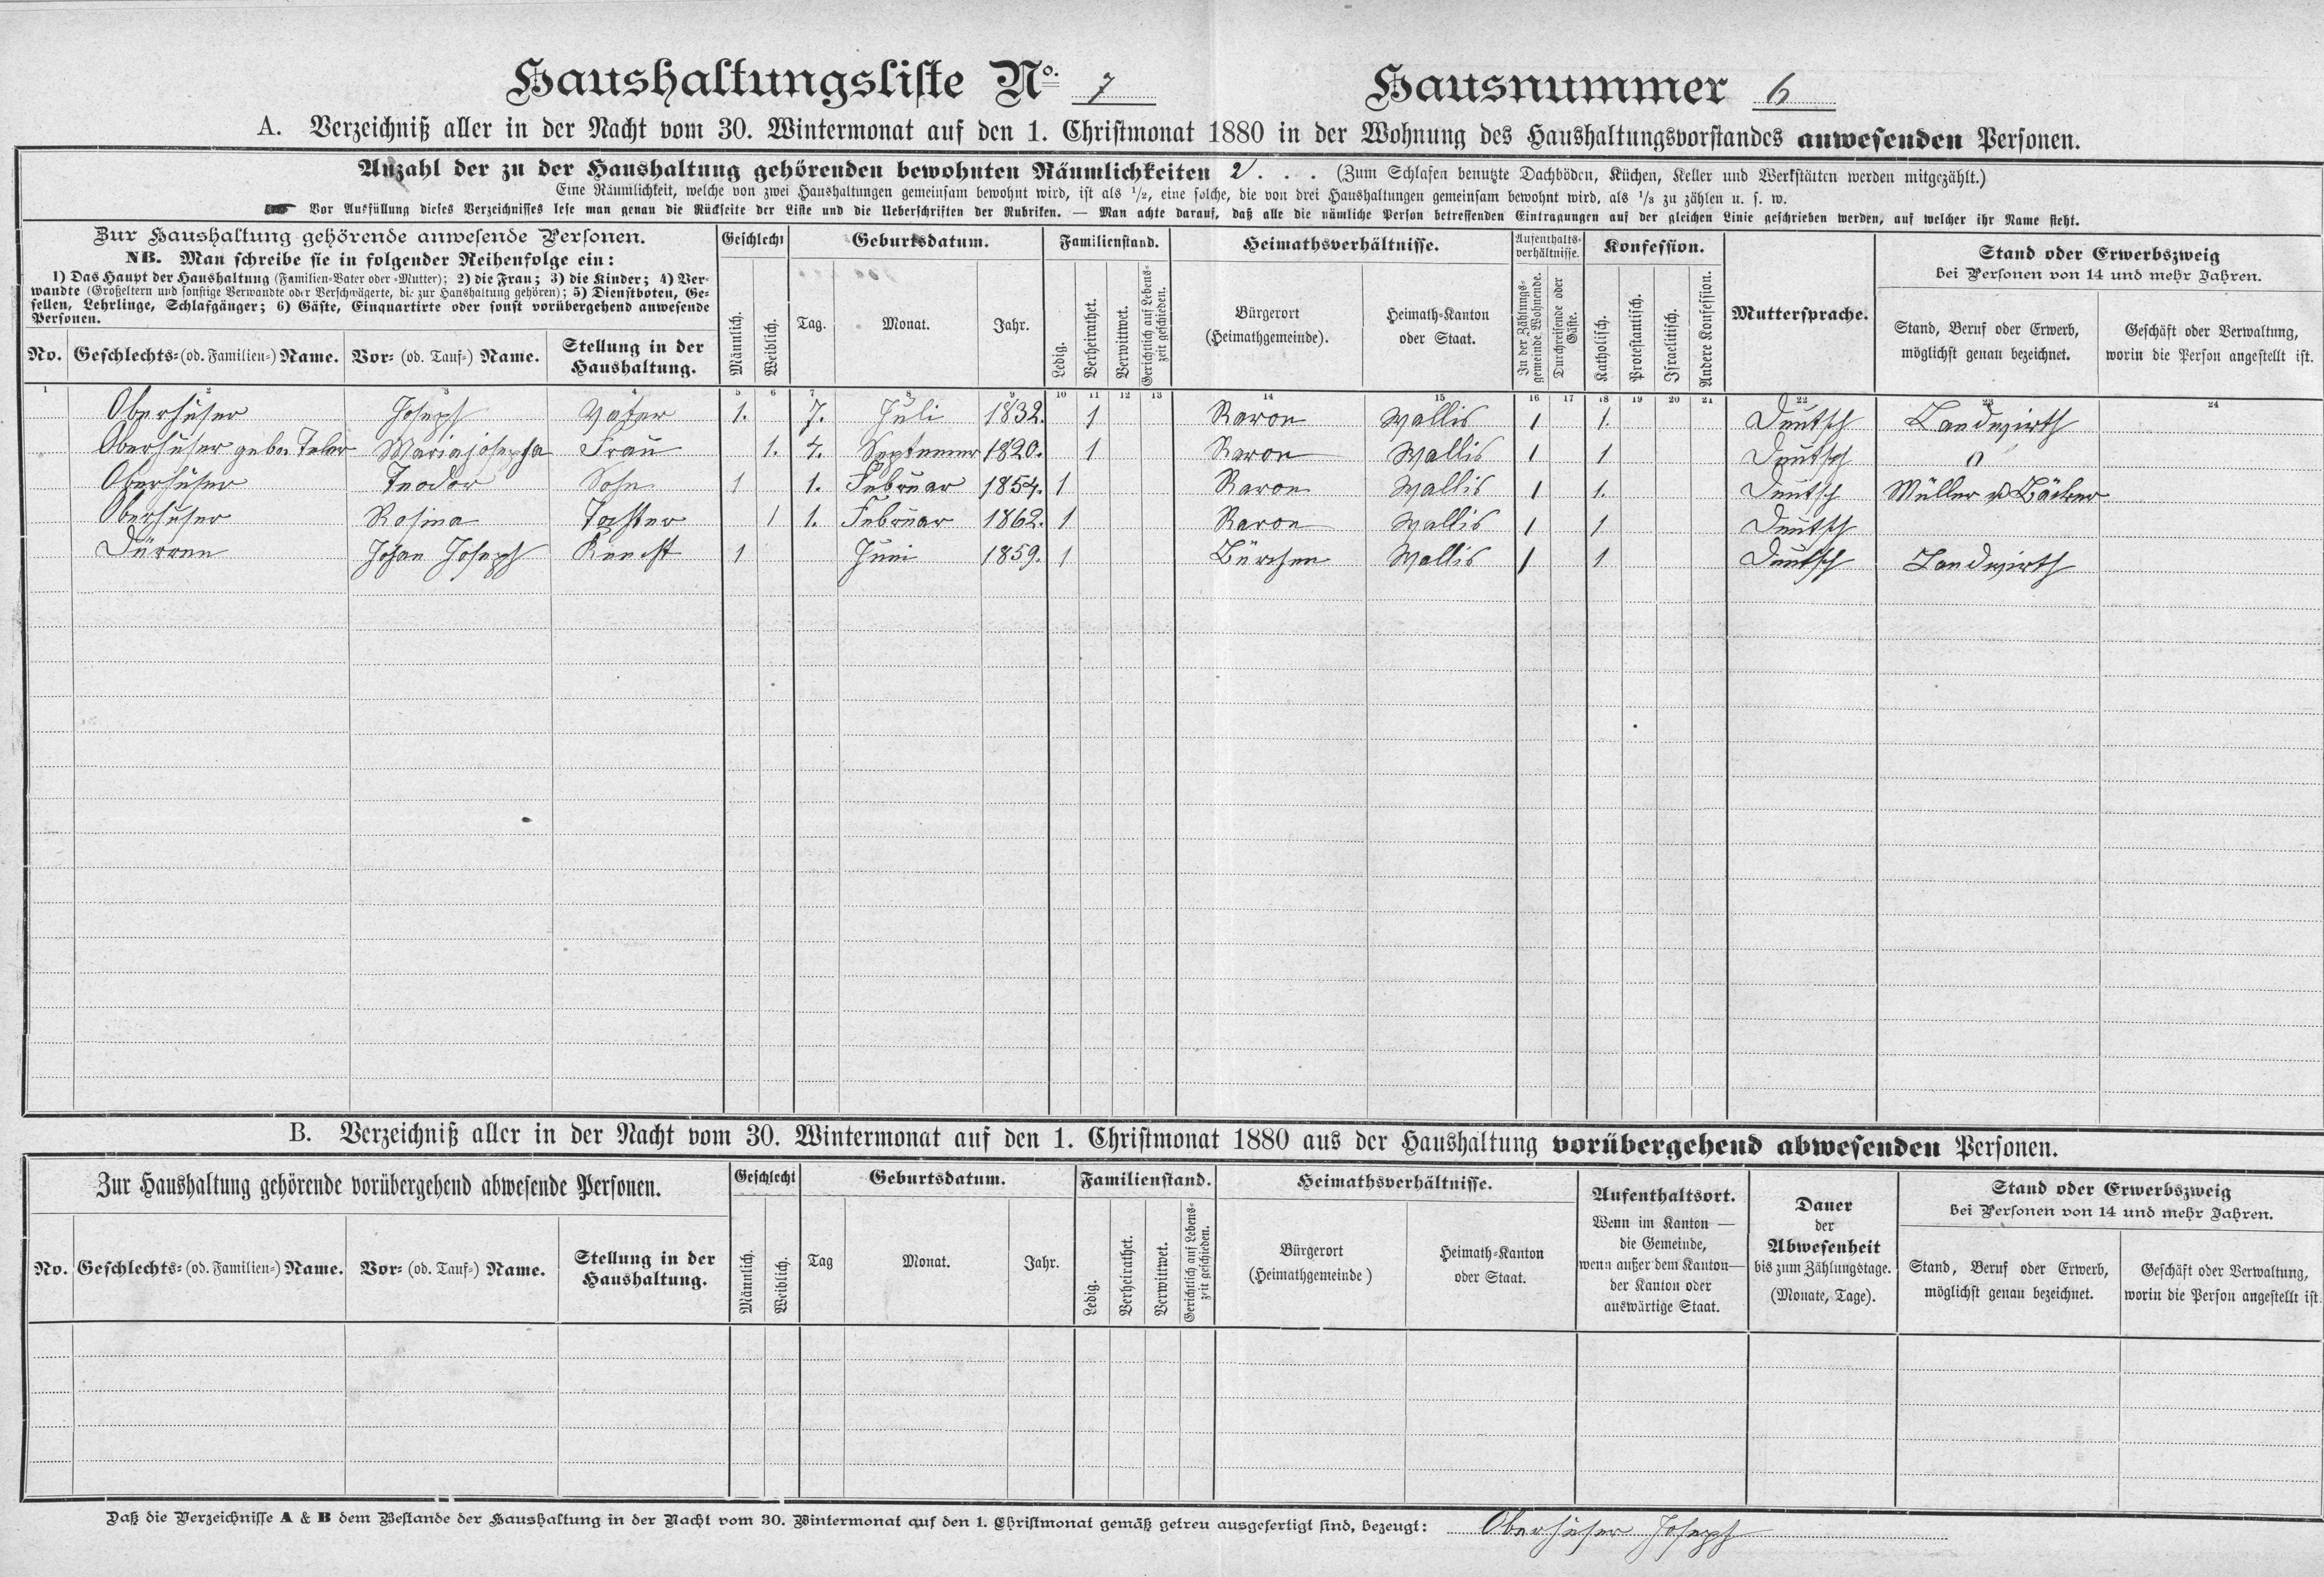 Haushaltungsliste No. 7 Hausnummer 6
A. Verzeichniß aller in der Nacht vom 30. Wintermonat auf den 1. Christmonat 1880 in der Wohnung des Haushaltungsvorstandes anwesenden Personen.
Anzahl der zu der Haushaltung gehörenden bewohnten Räumlichkeiten 2 . . . (Zum Schlafen benutzte Dachböden, Küchen, Keller und Werkstätten werden mitgezählt.)
Eine Räumlichkeit, welche von zwei Haushaltungen gemeinsam bewohnt wird, ist als 1/2, eine solche, die von drei Haushaltungen gemeinsam bewohnt wird, als 1/3 zu zählen u. s. w.
Vor Ausfüllung dieses Verzeichnisses lese man genau die Rückseite der Liste und die Ueberschriften der Rubriken. — Man achte darauf, daß alle die nämliche Person betreffenden Eintragungen auf der gleichen Linie geschrieben werden, auf welcher ihr Name steht.
Zur Haushaltung gehörende anwesende Personen.
NB. Man schreibe sie in folgender Reihenfolge ein:
1) Das Haupt der Haushaltung (Familien-Vater oder -Mutter); 2) die Frau; 3) die Kinder; 4) Ver-
wandte (Großeltern und sonstige Verwandte oder Verschwägerte, die zur Haushaltung gehören); 5) Dienstboten, Ge-
sellen, Lehrlinge, Schlafgänger; 6) Gäste, Einquartirte oder sonst vorübergehend anwesende
Personen.
No. Geschlechts- (od. Familien-) Name. Vor- (od. Tauf-) Name. Stellung in der
Haushaltung.
Geschlecht
Männlich. Weiblich.
Geburtsdatum.
Tag. Monat. Jahr.
Familienstand.
Ledig. Verheirathet. Verwittwet. Gerichtlich auf Lebens-
zeit geschieden.
Heimathsverhältnisse.
Bürgerort
(Heimathgemeinde).
Heimath-Kanton
oder Staat.
Aufenthalts-
verhältnisse.
In der Zählungs-
gemeinde Wohnende.
Durchreisende oder
Gäste.
Konfession.
Katholisch. Protestantisch. Israelitisch. Andere Konfession.
Muttersprache.
Stand oder Erwerbszweig
bei Personen von 14 und mehr Jahren.
Stand, Beruf oder Erwerb,
möglichst genau bezeichnet.
Geschäft oder Verwaltung,
worin die Person angestellt ist.
1 2 3 4 5 6 7 8 9 10 11 12 13 14 15 16 17 18 19 20 21 22 23 24
Oberhuser Joseph Vater 1. 7. Juli 1832. 1 Raron Wallis 1 1. Deutsch Landwirth
Oberhuser gebor Teler Mariajosepha Frau 1. 4. Septemer 1820. 1 Raron Wallis 1 1 Deutsch 0
Oberhuser Teodor Sohn 1 1. Februar 1854. 1 Raron Wallis 1 1. Deutsch Müller u Bäcker
Oberhuser Rosina Tochter 1 1. Februar 1862. 1 Raron Wallis 1 1 Deutsch
Dürren Johan Joseph Knecht 1 Juni 1859. 1 Bürchen Wallis 1 1 Deutsch Landwirth
B. Verzeichniß aller in der Nacht vom 30. Wintermonat auf den 1. Christmonat 1880 aus der Haushaltung vorübergehend abwesenden Personen.
Zur Haushaltung gehörende vorübergehend abwesende Personen.
No. Geschlechts- (od. Familien-) Name. Vor- (od. Tauf-) Name. Stellung in der
Haushaltung.
Geschlecht
Männlich. Weiblich.
Geburtsdatum.
Tag Monat. Jahr.
Familienstand.
Ledig. Verheirathet. Verwittwet. Gerichtlich auf Lebens-
zeit geschieden.
Heimathsverhältnisse.
Bürgerort
(Heimathgemeinde)
Heimath-Kanton
oder Staat.
Aufenthaltsort.
Wenn im Kanton —
die Gemeinde,
wenn außer dem Kanton—
der Kanton oder
auswärtige Staat.
Dauer
der
Abwesenheit
bis zum Zählungstage.
(Monate, Tage).
Stand oder Erwerbszweig
bei Personen von 14 und mehr Jahren.
Stand, Beruf oder Erwerb,
möglichst genau bezeichnet.
Geschäft oder Verwaltung,
worin die Person angestellt ist.
Daß die Verzeichnisse A & B dem Bestande der Haushaltung in der Nacht vom 30. Wintermonat auf den 1. Christmonat gemäß getreu ausgefertigt sind, bezeugt: Oberhuser Joseph